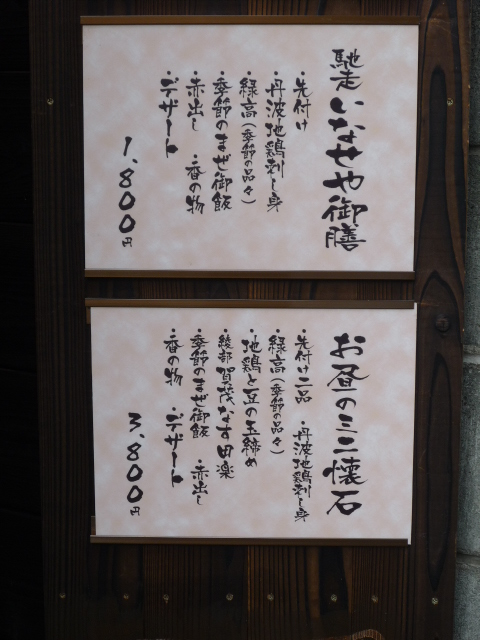 馳走 いなせや御膳
・先付け
・丹波地鶏刺し身
・緑高(季節の品々)
・季節のまぜ御飯
・赤出し ・香の物
・デザート
1,800円
お昼のミニ懐石
・先付け二品 ・丹波地鶏刺し身
・緑高(季節の品々)
・地鶏と豆の玉締め
・綾部賀茂なす田楽
・季節のまぜ御飯 ・赤出し
・香の物 ・デザート
3,800円